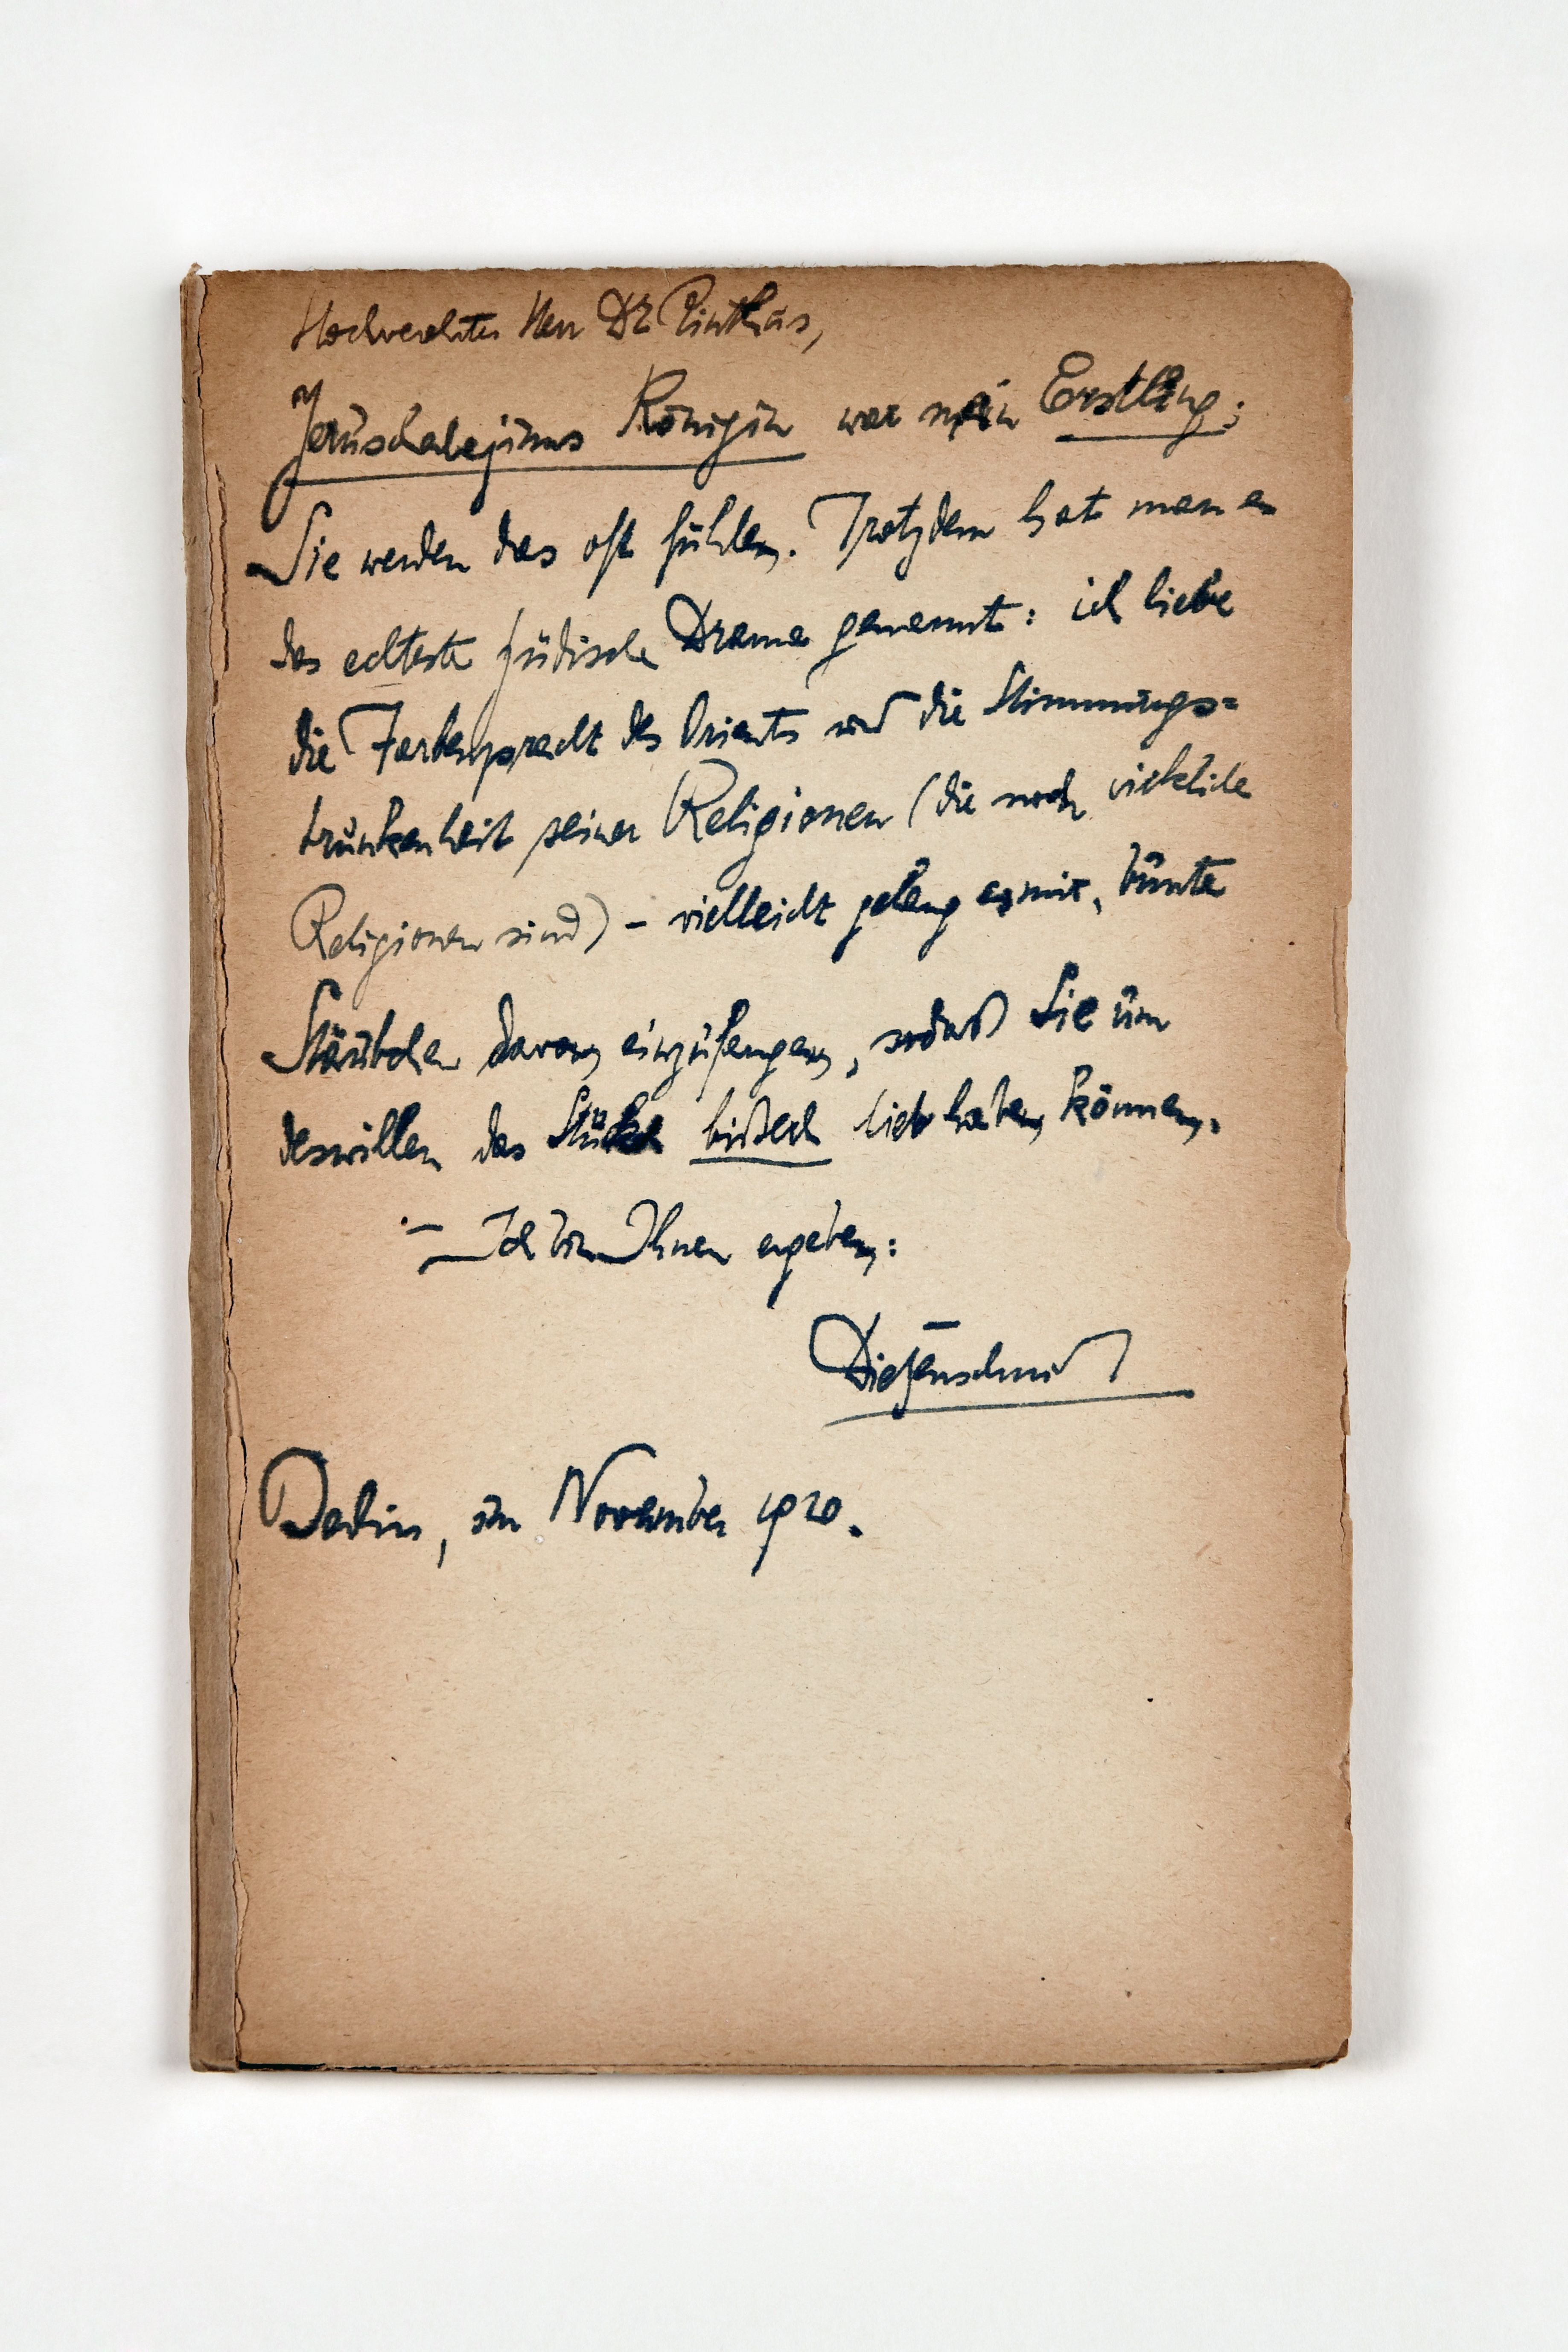 Hochverehrter Herr Dr Pinthus,
Jeruschalajims Königin war mein Erstling;
Sie werden das oft fühlen. Trotzdem hat man es
das echteste jüdische Drama genannt: ich liebe
die Farbenpracht des Orients und die Stimmungs=
trunkenheit seiner Religionen (die noch wirkliche
Religionen sind) – vielleicht gelang es mir, bunte
Stäubchen davon einzufangen, sodaß Sie um
deswillen das Stück bißerl lieb haben können.
– Ich bin Ihnen ergeben:
Dietzenschmidt
Berlin, im November 1920.